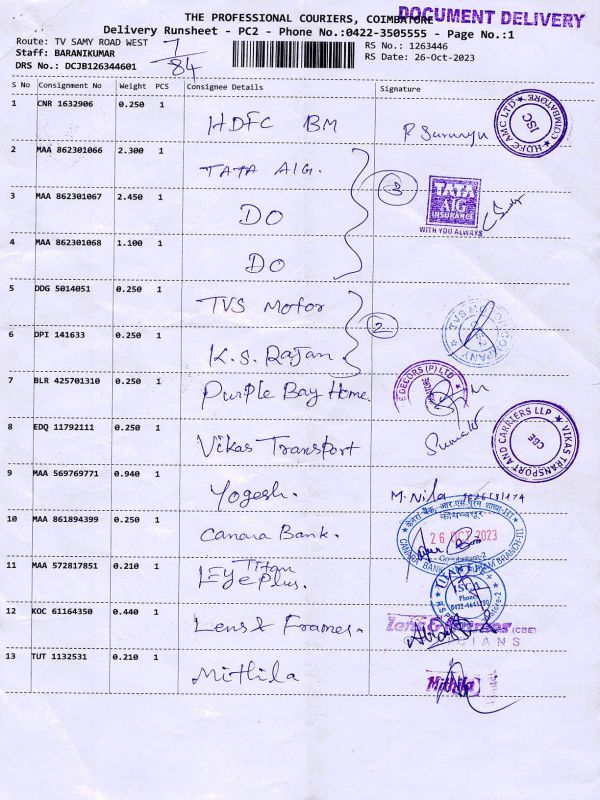 THE PROFESSIONAL COURIERS, COIMBATORE
DOCUMENT DELIVERY
Delivery Runsheet - PC2 - Phone No.:0422-3505555 - Page No.:1
Route: TV SAMY ROAD WEST
RS No.: 1263446
Staff: BARANIKUMAR
RS Date: 26-Oct-2023
DRS No.: DCJB126344601
7/84
S No Consignment No Weight PCS Consignee Details Signature
1 CNR 1632906 0.250 1 HDFC BM
HDFC AMC LTD COIMBATORE ISC
2 MAA 862301066 2.300 1 TATA AIG.
3
TATA
AIG
INSURANCE
WITH YOU ALWAYS
3 MAA 862301067 2.450 1 DO
4 MAA 862301068 1.100 1 DO
5 DDG 5014051 0.250 1 TVS Motor
2
6 DPI 141633 0.250 1 K.S. Rajan.
7 BLR 425701310 0.250 1 Purple Bay Home
DECORS (P) LTD
8 EDQ 11792111 0.250 1 Vikas Transport
VIKAS TRANSPORT AND CARRIERS LLP CBE
9 MAA 569769771 0.940 1 Yogesh.
M. Nila
10 MAA 861894399 0.250 1 Canara Bank.
कोयम्बत्तूर
26 OCT 2023
11 MAA 572817851 0.210 1 Titan
Eye Plus.
Phone
12 KOC 61164350 0.440 1 Lens & Frames.
Lens & Frames (CBE)
OPTICIANS
13 TUT 1132531 0.210 1 Mithila
Mithila